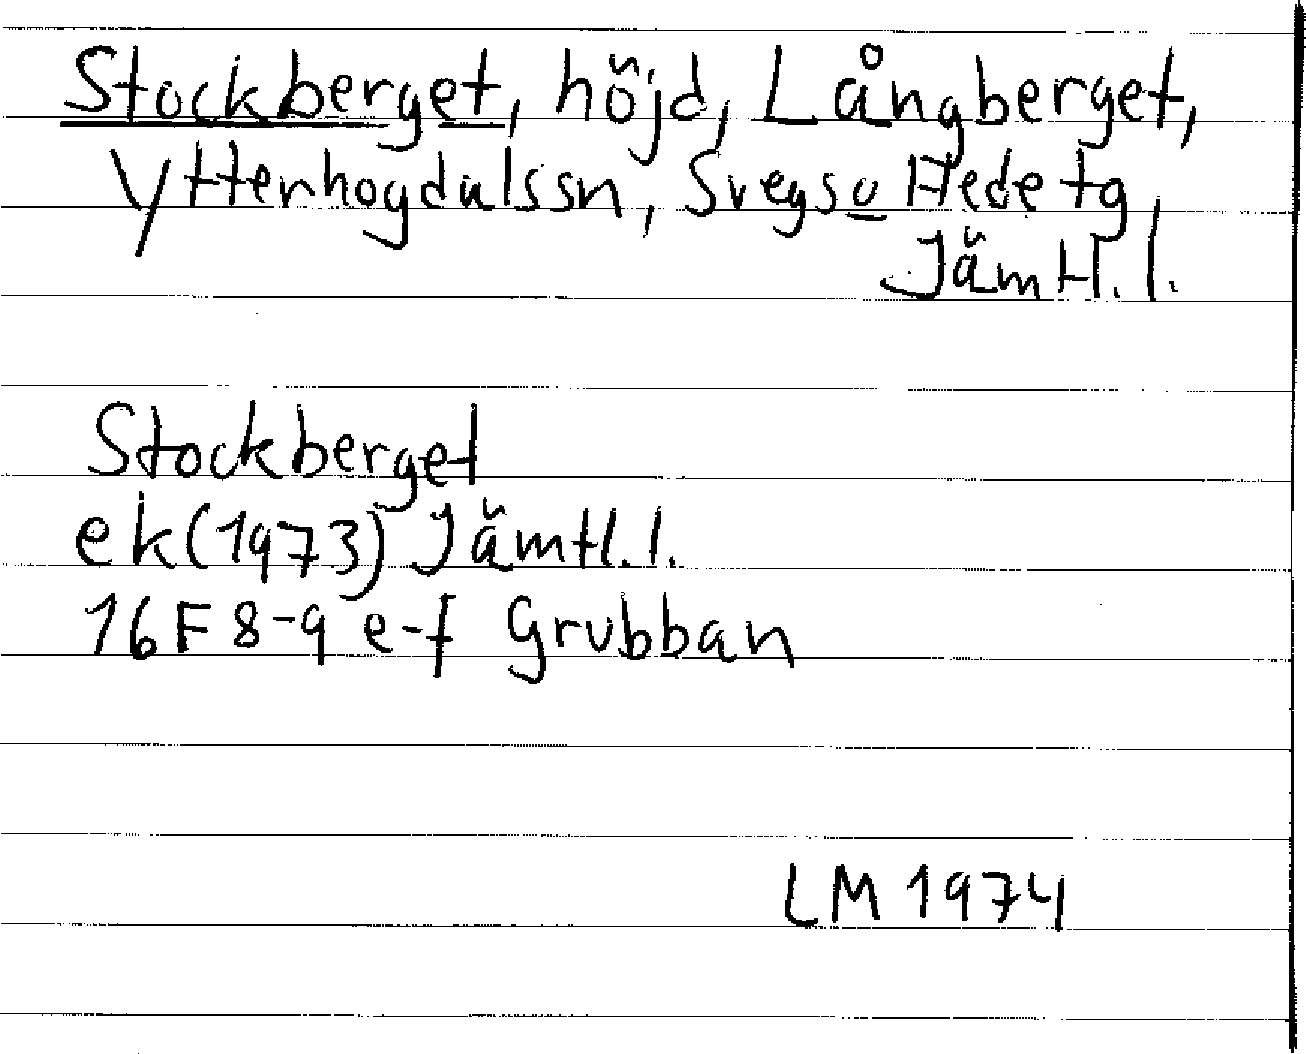 Stockberget, höjd, Långberget,
Ytterhogdalssn, Svegs o Hede tg,
Jämtl.l.
Stockberget
ek(1973) Jämtl.l.
16F 8-9 e-f Grubban
LM 1974